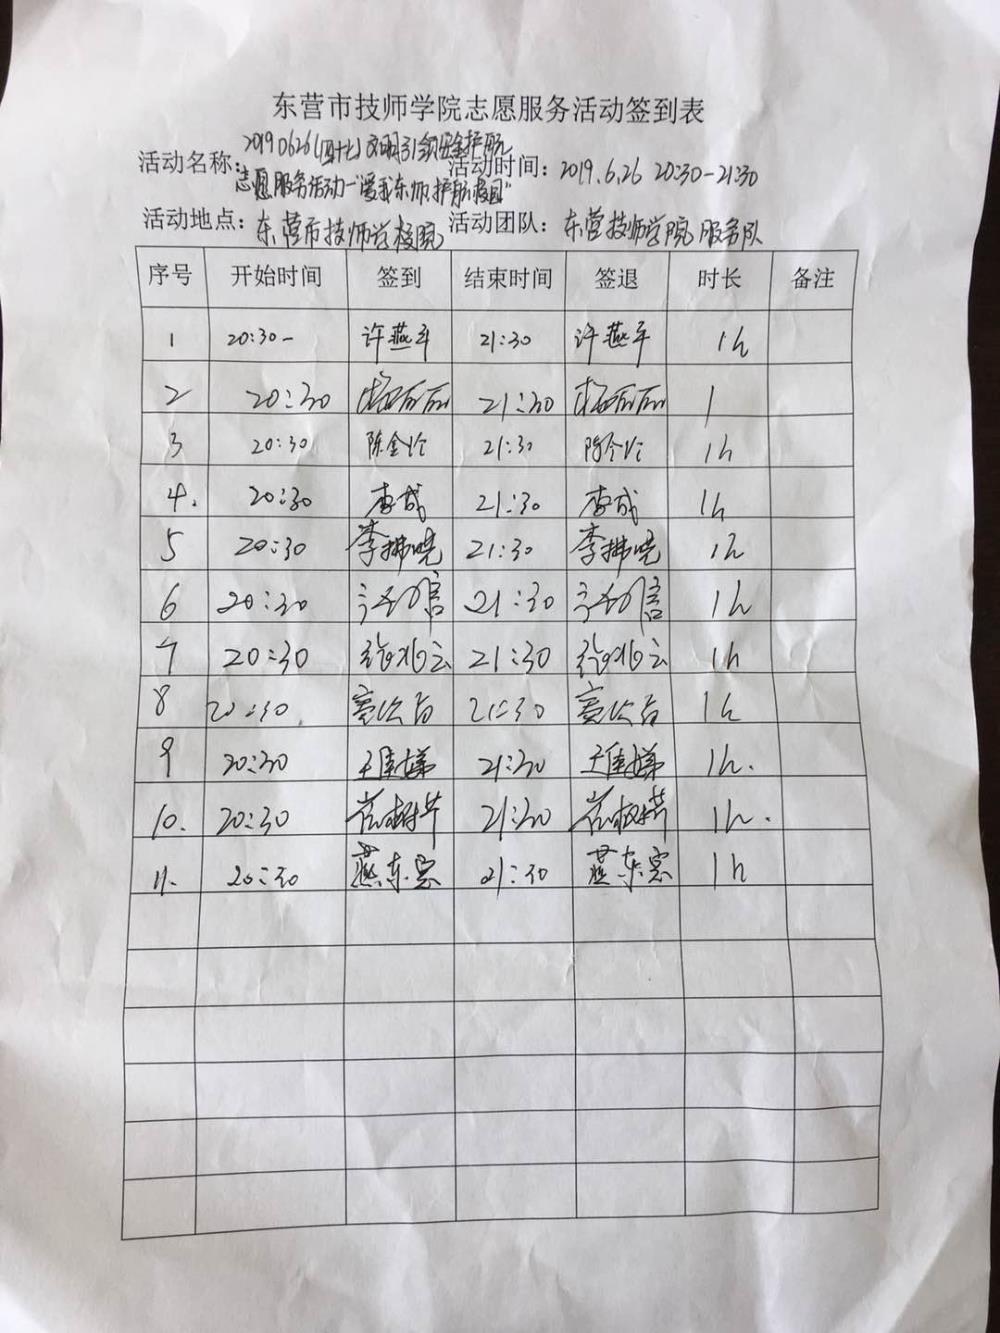 东营市技师学院志愿服务活动签到表
活动名称：20190626(四十七)文明引领安全护航
志愿服务活动—"爱我东师,护航校园"
活动时间：2019.6.26 20:30-21:30
活动地点：东营市技师学校院 活动团队：东营技师学院服务队
序号 开始时间 签到 结束时间 签退 时长 备注
1 20:30- 许燕平 21:30 许燕平 1h
2 20:30 21:30 1
3 20:30 陈金玲 21:30 陈金玲 1h
4. 20:30 李成 21:30 李成 1h
5 20:30 李拂晓 21:30 李拂晓 1h
6 20:30 21:30 1h
7 20:30 21:30 1h
8 20:30. 21:30 1h
9 20:30 王佳娣 21:30 王佳娣 1h.
10. 20:30 21:30 1h.
11. 20:30 燕东 21:30 燕东 1h